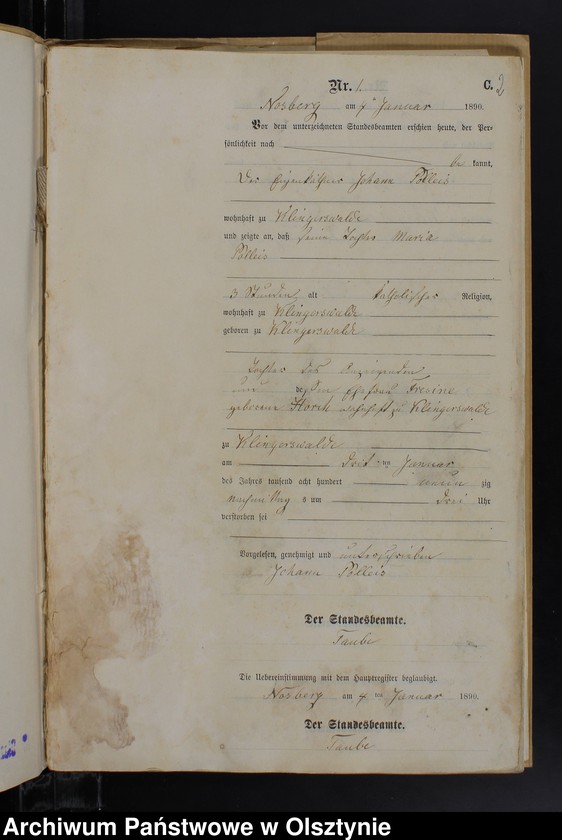 Nr. 1.
C.
2
Nosberg am 4 ten Januar 1890.
Vor dem unterzeichneten Standesbeamten erschien heute, der Per-
sönlichkeit nach
be kannt,
Der Eigenkäthner Johann Polleis
wohnhaft zu Klingerswalde
und zeigte an, daß seine Tochter Maria
Polleis
3 Stunden alt katholischer Religion,
wohnhaft zu Klingerswalde
geboren zu Klingerswalde
Tochter des Anzeigenden
und dessen Ehefrau
geborene Horch wohnhaft zu Klingerswalde
zu Klingerswalde
am Januar
des Jahres tausend acht hundert neun zig
nachmittag s um drei Uhr
verstorben sei
Vorgelesen, genehmigt und unterschrieben
Johann Polleis
Der Standesbeamte.
Taube
Die Uebereinstimmung mit dem Hauptregister beglaubigt.
Nosberg am 4 ten Januar 1890.
Der Standesbeamte.
Taube
Archiwum Państwowe w Olsztynie